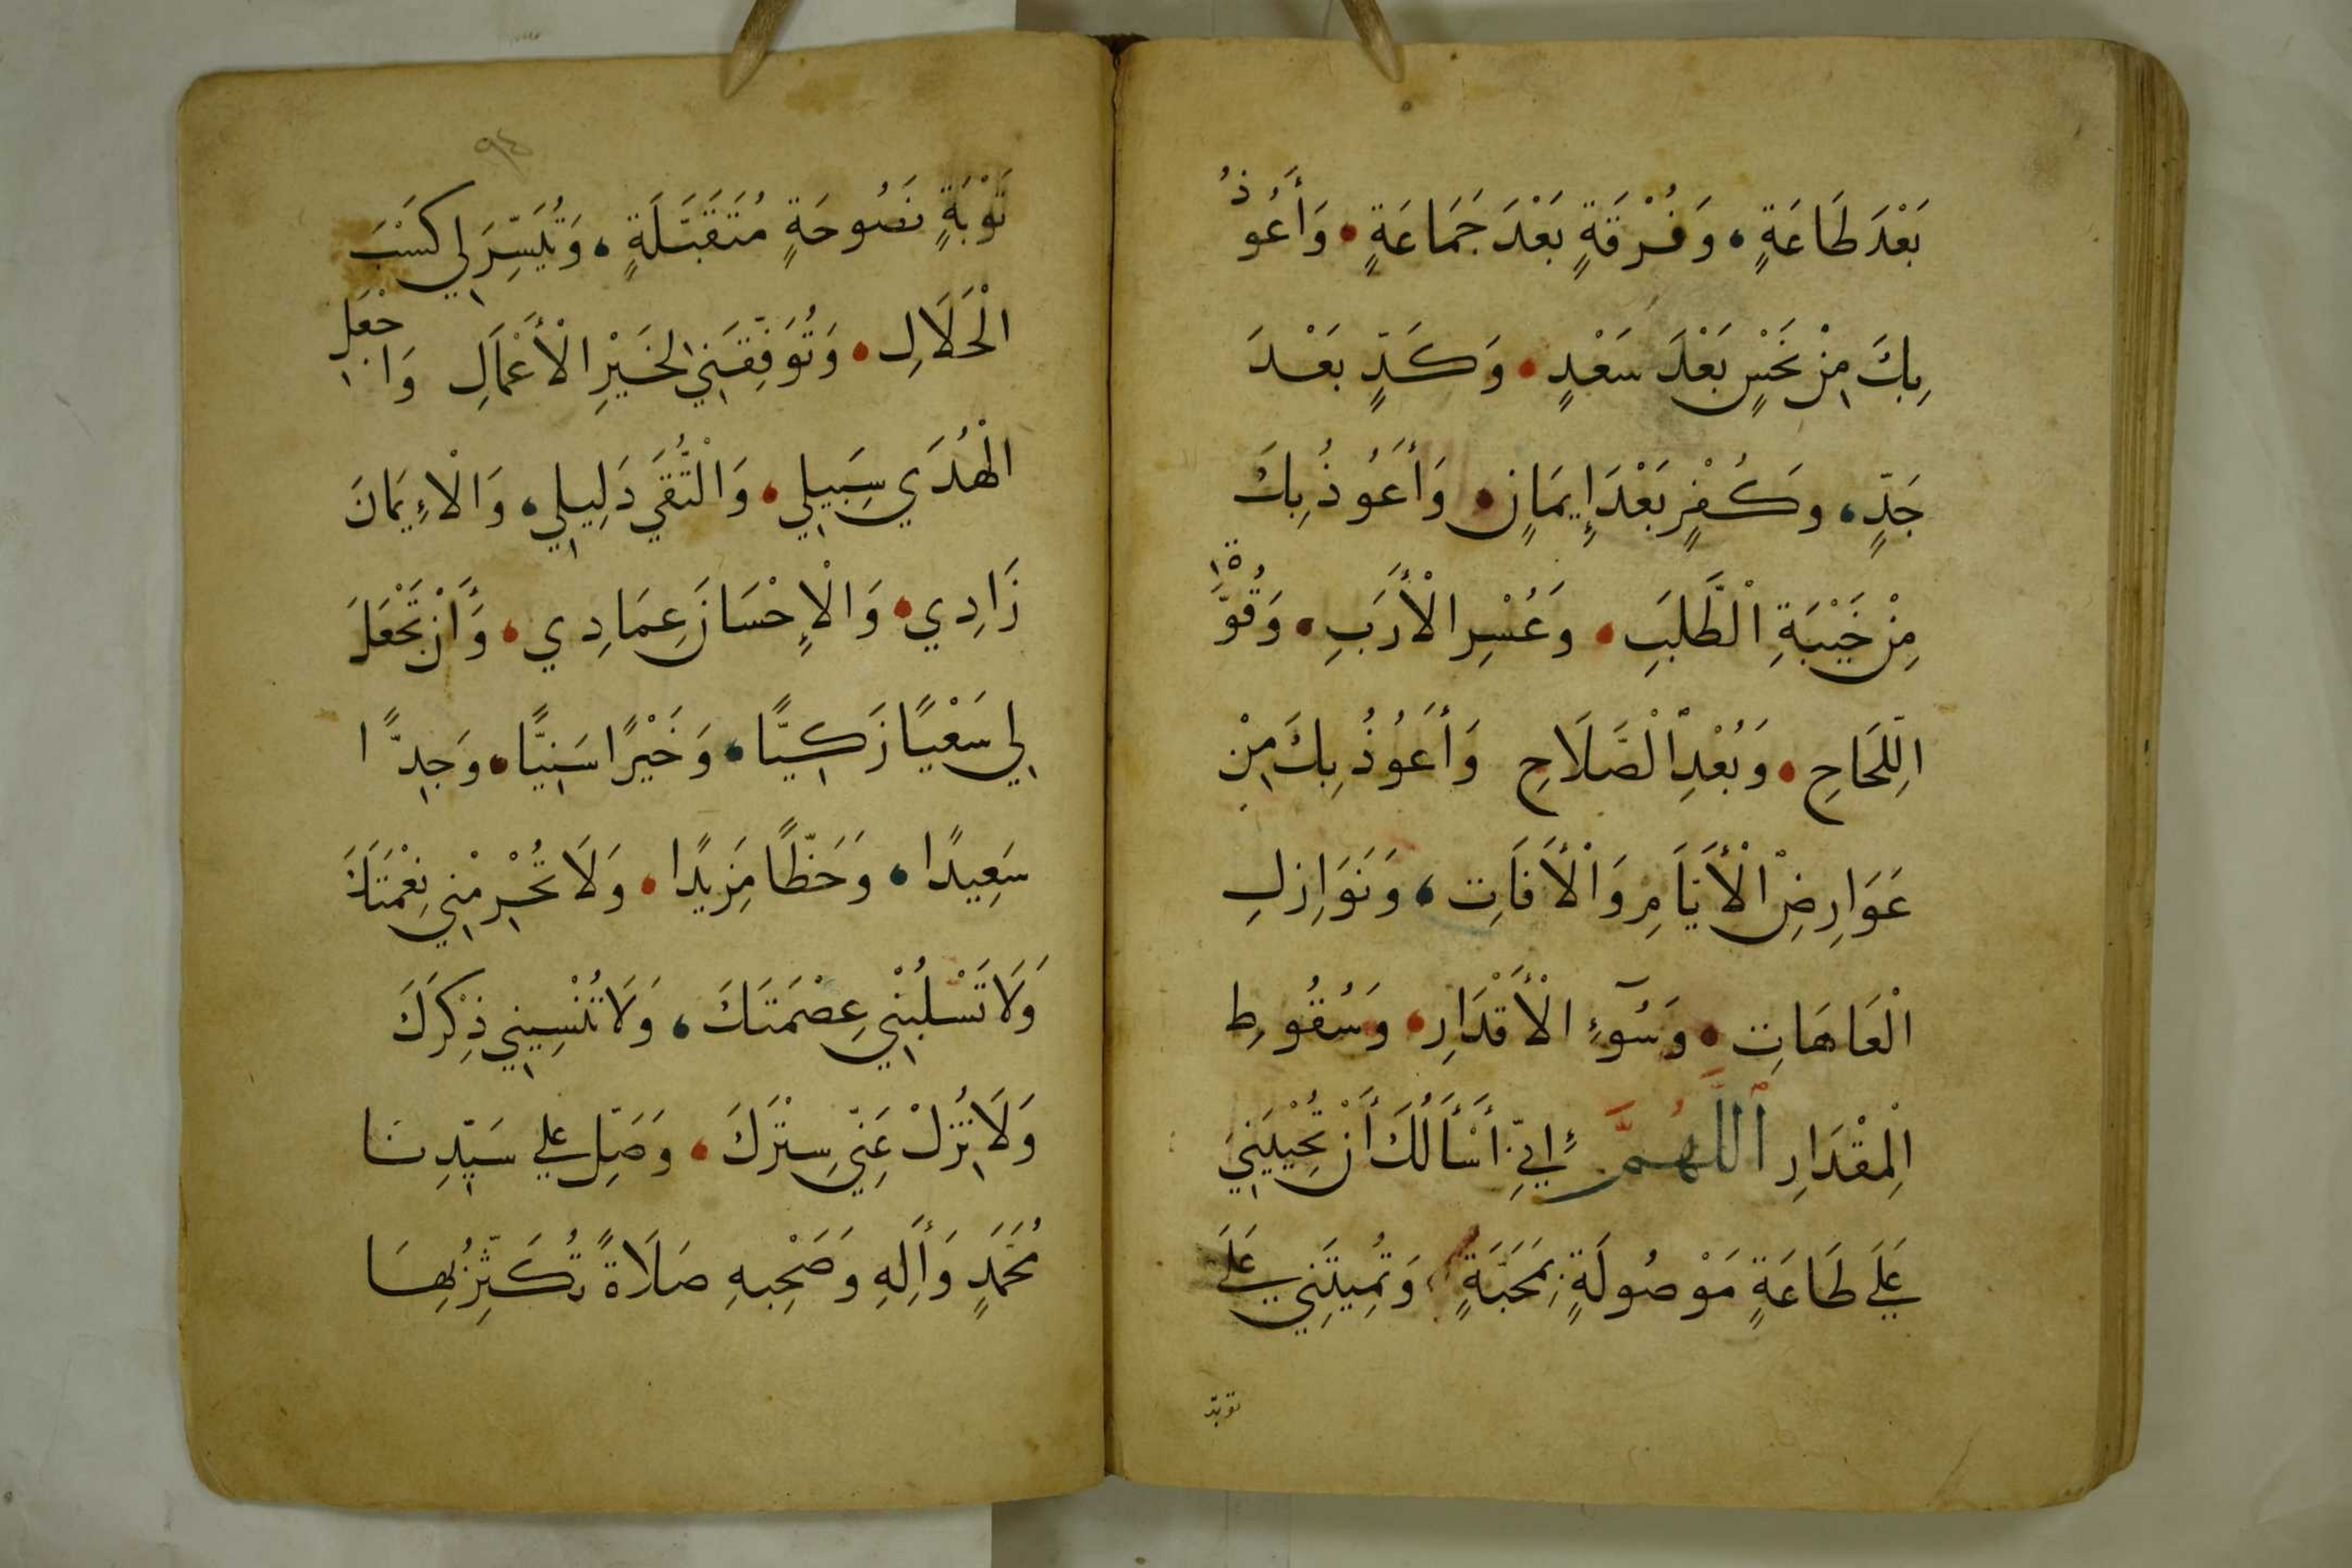 بَعْدَ طَاعَةٍ، وَفُرْقَةٍ بَعْدَ جَمَاعَةٍ، وَأَعُوذُ
بِكَ مِنْ نَحْسٍ بَعْدَ سَعْدٍ، وَكَدٍّ بَعْدَ
جَدٍّ، وَكُفْرٍ بَعْدَ إِيمَانٍ، وَأَعُوذُ بِكَ
مِنْ خَيْبَةِ الْطَّلَبِ، وَعُسْرِ الْأَرَبِ، وَقُوَّةِ
الِلّحَاحِ، وَبُعْدِ الْصَّلَاحِ وَأَعُوذُ بِكَ مِنْ
عَوَارِضِ الْأَيَامِ وَالْأَفَاتِ، وَنَوَازِلِ
الْعَاهَاتِ، وَسُوٓءِ الْأَقْدَارِ، وَسُقُوطِ
الْمِقْدَارِ اللَّهُمَّ إِنِّي أَسْأَلُكَ أَنْ تُحْيِيَنِي
عَلَى طَاعَةٍ مَوْصُولَةٍ بِمَحَبَّةٍ، وَتُمِيتَنِي عَلَى
توبة
تَوْبَةٍ نَصُوحَةٍ مُتَقَبَّلَةٍ، وَتُيَسِّرَ لِي كَسْبَ
الْحَلَالِ، وَتُوَفِّقَنِي لِخَيْرِ الْأَعْمَالِ وَاجْعَلِ
الْهُدَي سَبِيلِي، وَالْتُّقَي دَلِيلِي، وَالْإِيمَانَ
زَادِي، وَالْإِحْسَانَ عِمَادِي، وَأَنْ تَجْعَلَ
لِي سَعْيًا زَكِيًّا، وَخَيْرًا سَنِيًّا، وَجِدًّا
سَعِيدًا، وَحَظًّا مَزِيدًا، وَلَا تُحْرِمْنِي نِعْمَتَكَ
وَلَا تَسْلُبْنِي عِصْمَتَكَ، وَلَا تُنْسِينِي ذِكْرَكَ
وَلَا تُزِلْ عَنِّي سِتْرَكَ، وَصَلِّ عَلَي سَيِّدِنَا
مُحَمَّدٍ وَأَلِهِ وَصَحْبِهِ صَلَاةً تُكَثِّرُ بِهَا